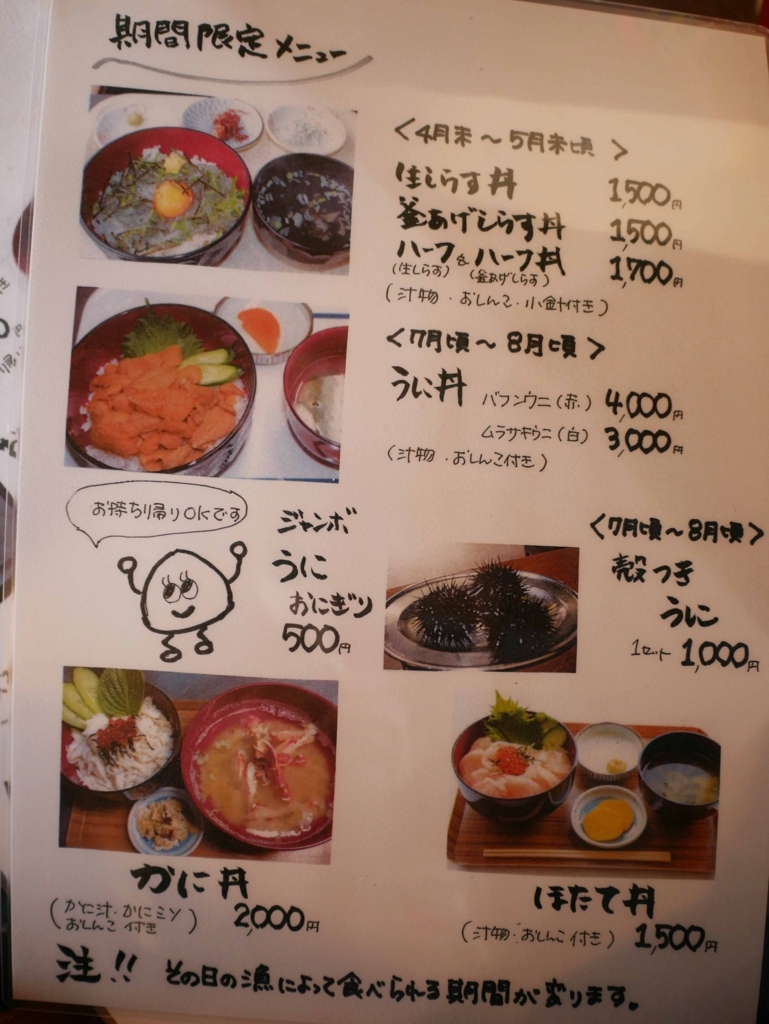 期間限定メニュー
<4月末～5月末頃>
生しらす丼 1,500円
釜あげしらす丼 1,500円
ハーフ&ハーフ丼 1,700円
(生しらす) (釜あげしらす)
(汁物・おしんこ・小鉢付き)
<7月頃～8月頃>
うに丼 バフンウニ(赤) 4,000円
ムラサキウニ(白) 3,000円
(汁物・おしんこ付き)
お持ち帰りOKです
ジャンボ
うに
おにぎり
500円
<7月頃～8月頃>
殻つき
うに
1セット 1,000円
かに丼
(かに汁・かにミソ
おしんこ付き) 2,000円
ほたて丼
(汁物・おしんこ付き) 1,500円
注!! その日の漁によって食べられる期間が変ります。